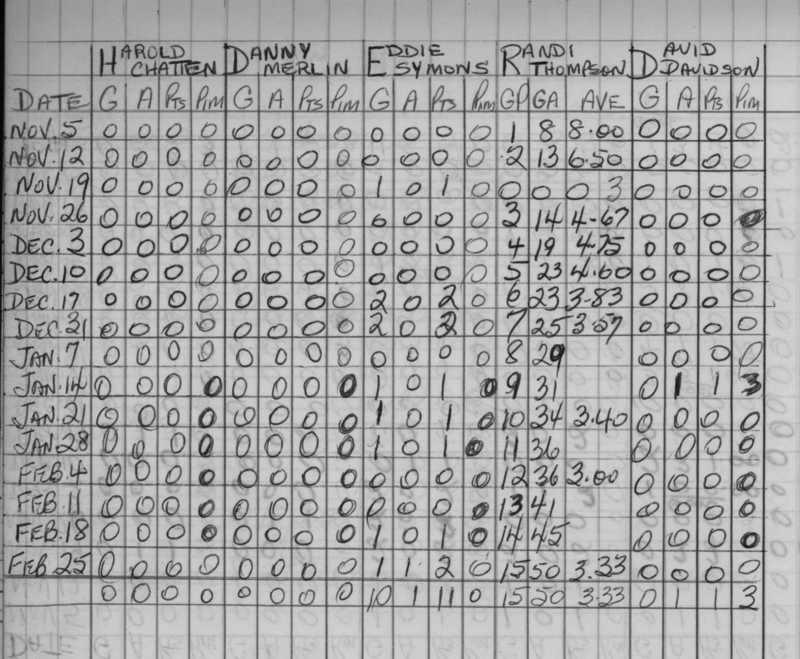 HAROLD CHATTEN DANNY MERLIN EDDIE SYMONS RANDI THOMPSON DAVID DAVIDSON
DATE G A PTS PIM G A PTS PIM G A PTS PIM GP GA AVE G A PTS PIM
NOV. 5 0 0 0 0 0 0 0 0 0 0 0 0 1 8 8.00 0 0 0 0
NOV. 12 0 0 0 0 0 0 0 0 0 0 0 0 2 13 6.50 0 0 0 0
NOV. 19 0 0 0 0 0 0 0 0 1 0 1 0 0 0 0 3 0 0 0 0
NOV. 26 0 0 0 0 0 0 0 0 0 0 0 0 3 14 4.67 0 0 0 0
DEC. 3 0 0 0 0 0 0 0 0 0 0 0 0 4 19 4.75 0 0 0 0
DEC. 10 0 0 0 0 0 0 0 0 0 0 0 0 5 23 4.60 0 0 0 0
DEC. 17 0 0 0 0 0 0 0 0 2 0 2 0 6 23 3.83 0 0 0 0
DEC. 31 0 0 0 0 0 0 0 0 2 0 2 0 7 25 3.57 0 0 0 0
JAN. 7 0 0 0 0 0 0 0 0 0 0 0 0 8 29 0 0 0 0
JAN. 14 0 0 0 0 0 0 0 0 1 0 1 0 9 31 0 1 1 3
JAN. 21 0 0 0 0 0 0 0 0 1 0 1 0 10 34 3.40 0 0 0 0
JAN. 28 0 0 0 0 0 0 0 0 1 0 1 0 11 36 0 0 0 0
FEB. 4 0 0 0 0 0 0 0 0 0 0 0 0 12 36 3.00 0 0 0 0
FEB. 11 0 0 0 0 0 0 0 0 0 0 0 0 13 41 0 0 0 0
FEB. 18 0 0 0 0 0 0 0 0 1 0 1 0 14 45 0 0 0 0
FEB. 25 0 0 0 0 0 0 0 0 1 1 2 0 15 50 3.33 0 0 0 0
0 0 0 0 0 0 0 0 10 1 11 0 15 50 3.33 0 1 1 3